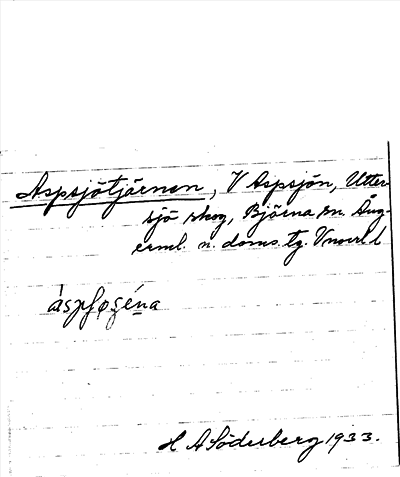 Aspsjötjärnen, V Aspsjön, Utter
sjö skog, Björna sn. Ång
erml. n. doms. tg. Vnorrl l
H A Söderberg 1933.